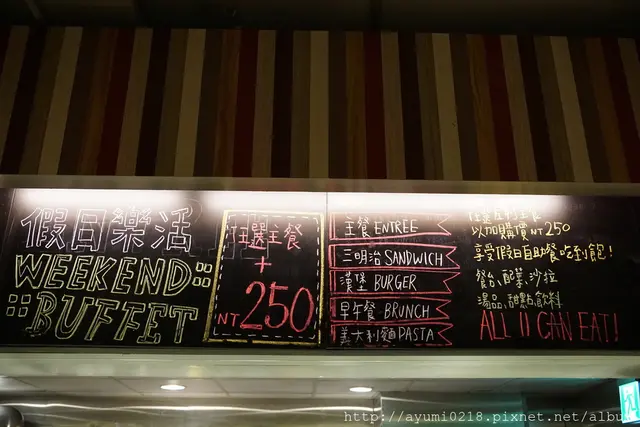 假日樂活
WEEKEND
BUFFET
任選主餐
+
NT250
主餐 ENTREE
三明治 SANDWICH
漢堡 BURGER
早午餐 BRUNCH
義大利麵 PASTA
任選左列主餐
以加購價 NT 250
享受假日自助餐吃到飽!
餐台、配菜、沙拉
湯品、甜點、飲料
ALL U CAN EAT!
http://ayumi0218.pixnet.net/albu